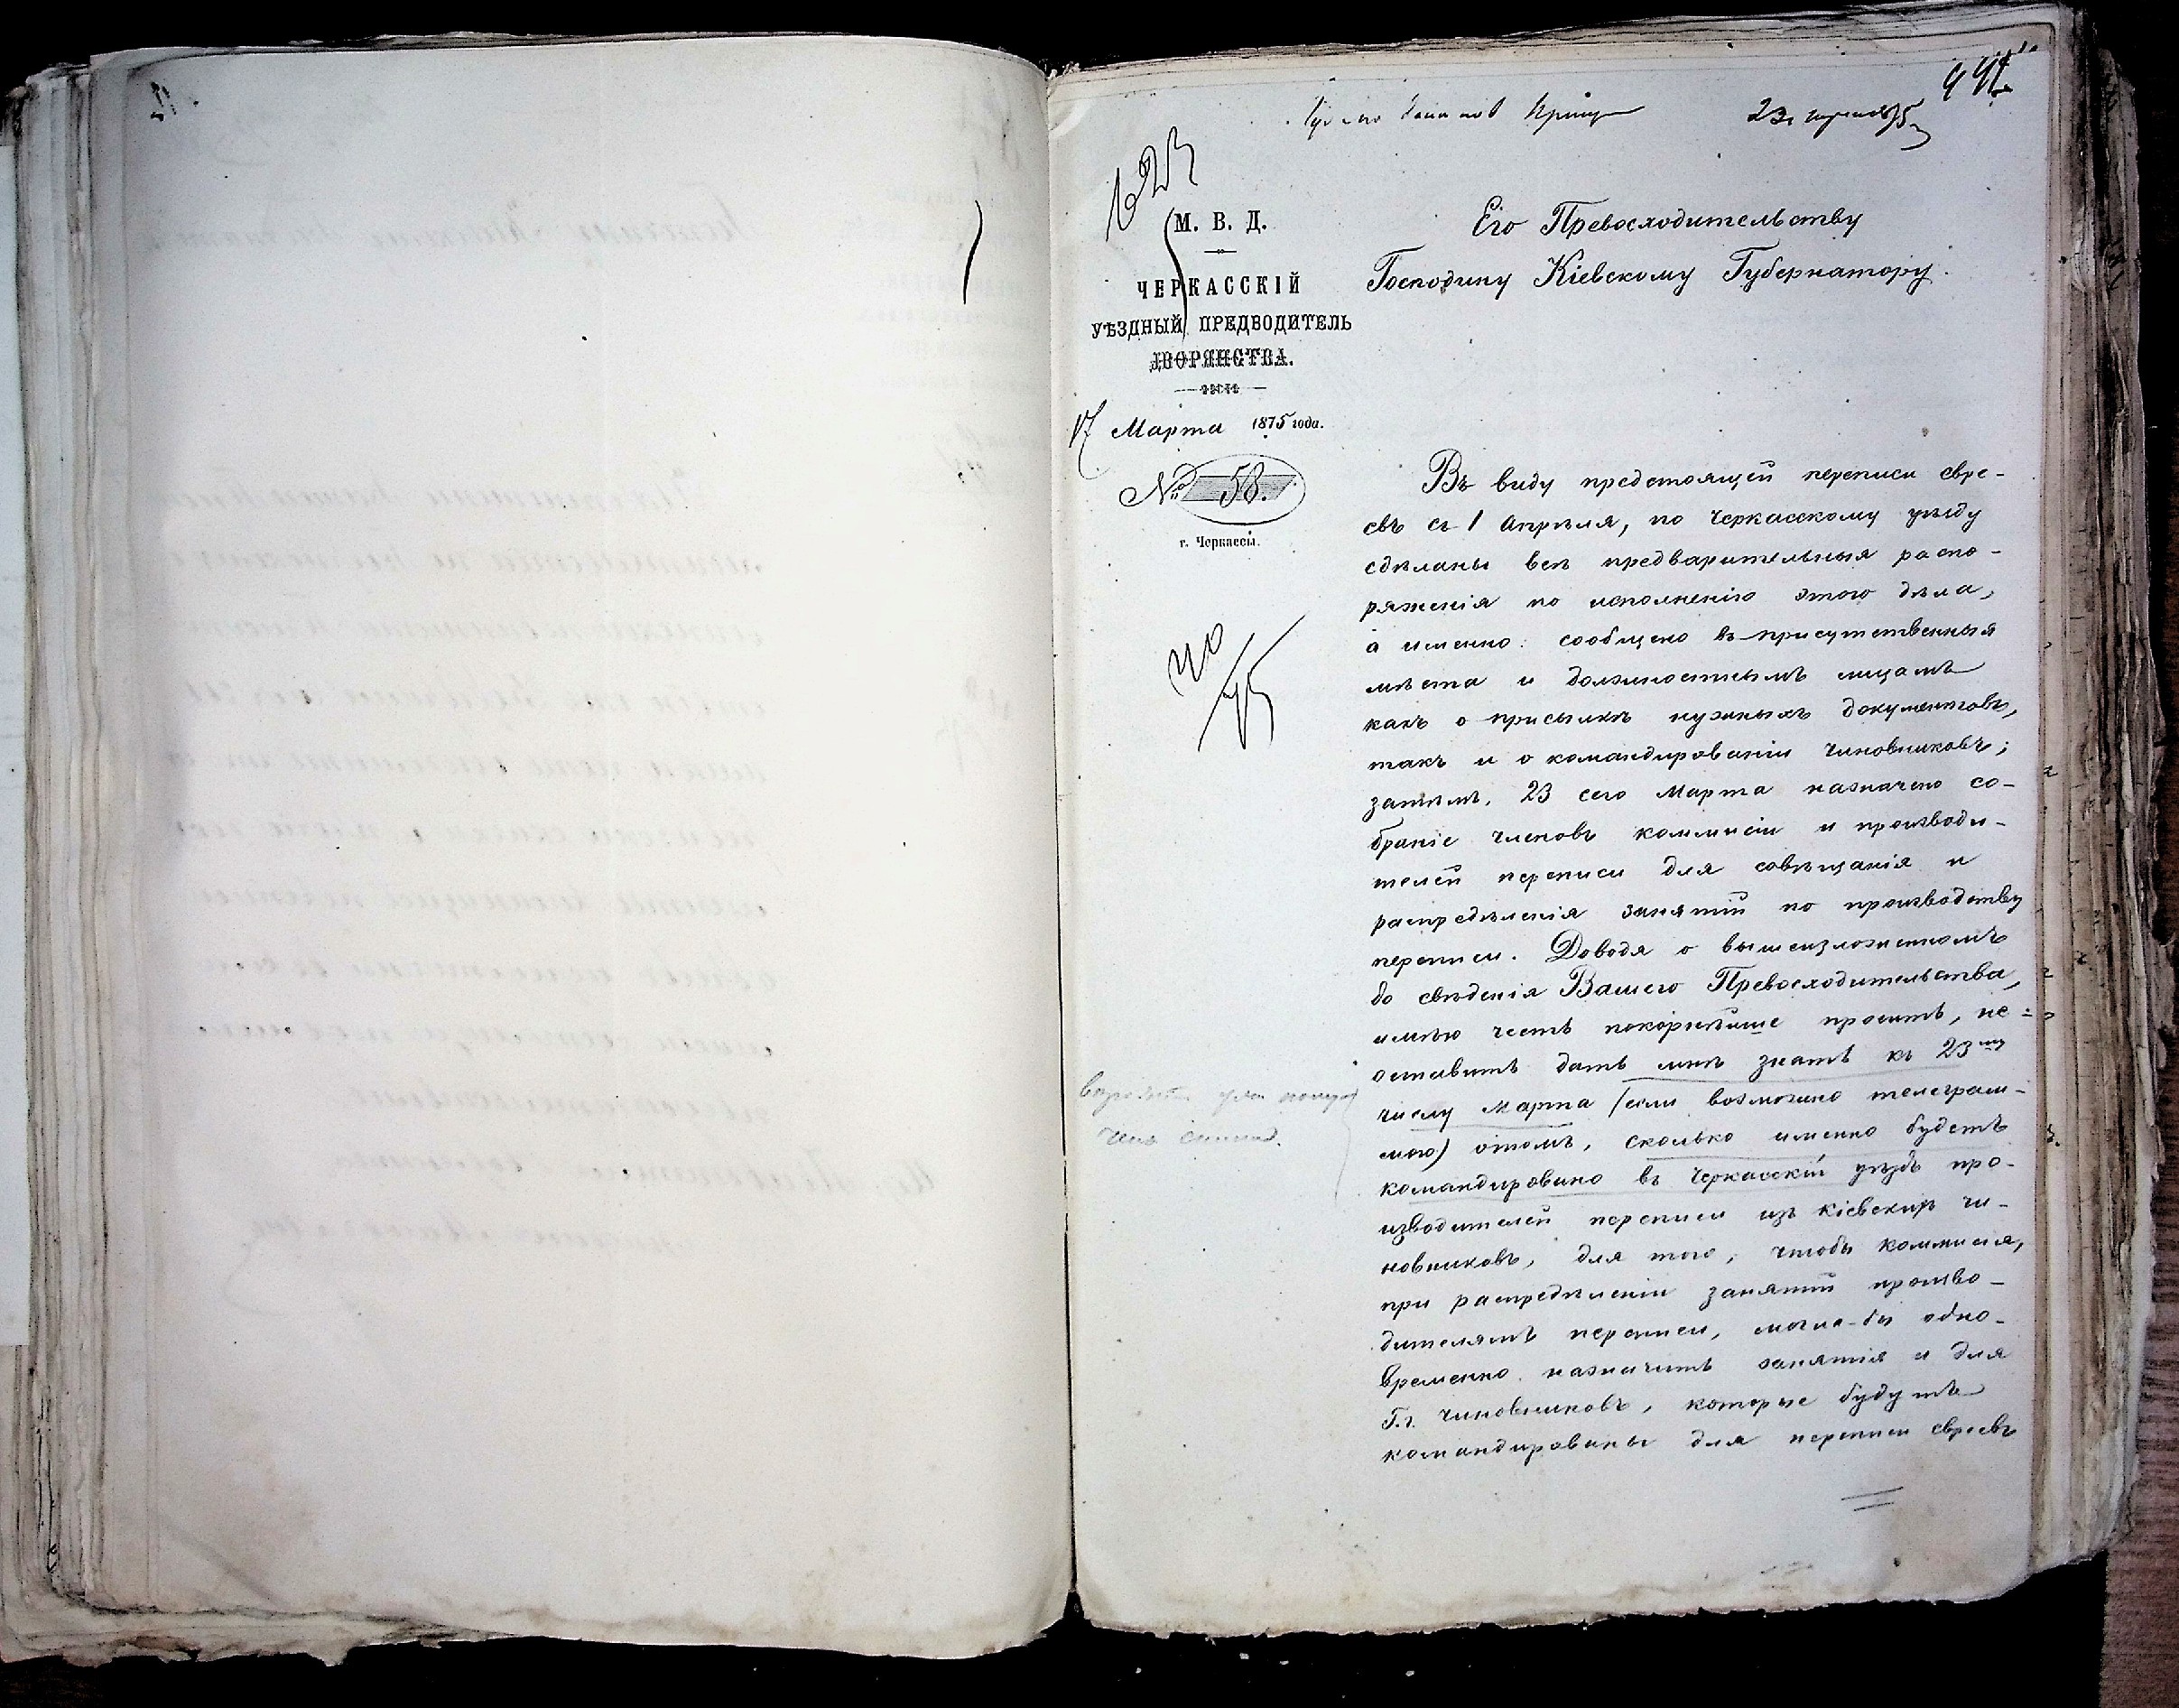 441
23 Марта 75
623
М. В. Д.
ЧЕРКАССКІЙ
УѢЗДНЫЙ ПРЕДВОДИТЕЛЬ
ДВОРЯНСТВА.
17 Марта 1875 года.
№ 58.
г. Черкассы.
40/75
Его Превосходительству
Господину Кіевскому Губернатору.
Въ виду предстоящей переписи евре-
евъ съ 1 Апрѣля, по Черкасскому уѣзду
сдѣланы всѣ предварительныя распо-
ряженія по исполненію этого дѣла,
а именно: сообщено въ присутственныя
мѣста и должностнымъ лицамъ
какъ о присылкѣ нужныхъ документовъ,
такъ и о командированіи чиновниковъ;
затѣмъ, 23 сего Марта назначено со-
браніе членовъ коммисіи и производи-
телей переписи для совѣщанія и
распредѣленія занятій по производству
переписи. Доводя о вышеизложенномъ
до свѣденія Вашего Превосходительства,
имѣю честь покорнѣйше просить, не-
оставить дать мнѣ знать къ 23му
числу Марта (если возможно телеграм-
мою) отомъ, сколько именно будетъ
командировано въ Черкасскій уѣздъ про-
изводителей переписи изъ кіевскихъ чи-
новниковъ, для того, чтобы коммисія,
при распредѣленіи занятій произво-
дителямъ переписи, могла-бы одно-
временно назначить занятія и для
Г.г. чиновниковъ, которые будутъ
командированы для переписи евреевъ